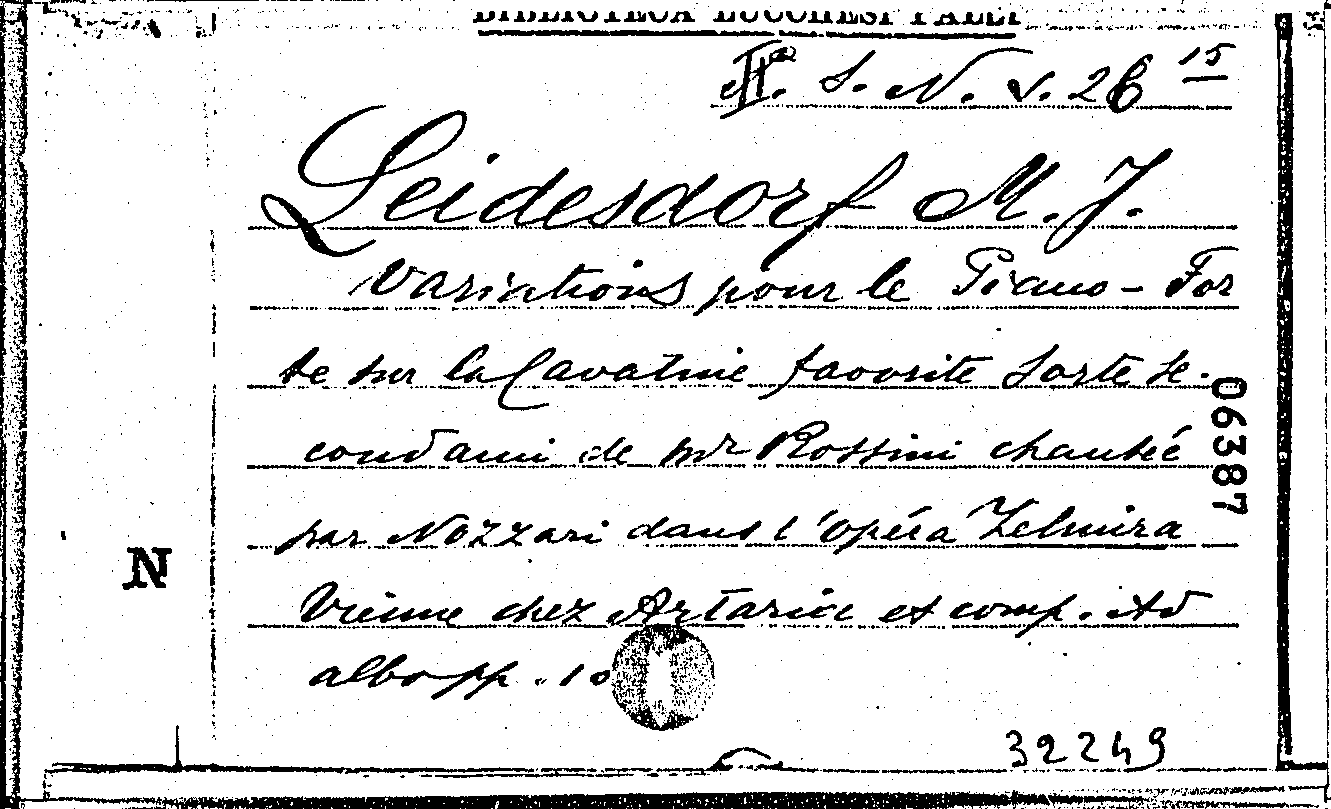 BIBLIOTECA LUCCHESI PALLI
II. S. N. v. 26 15
Leidesdorf M. J.
Variations pour le Piano-For
te sur la Cavatine favorite Sorte se-
condami de mr Rossini chantée
par Nozzari dans l'opéra Zelmira
Vienne chez Artaria et comp. Ad
albo pp. 10
06387
N
32249